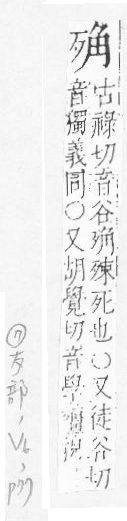 古祿切音谷殐死也○又徒谷切
音獨義同○又胡覺切音學
⑦歹部, V6, p77